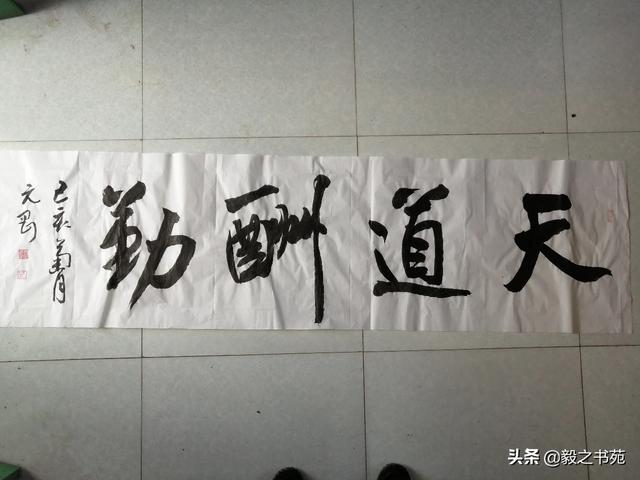 天道酬勤
己亥菊月
元昌
头条 @毅之书苑